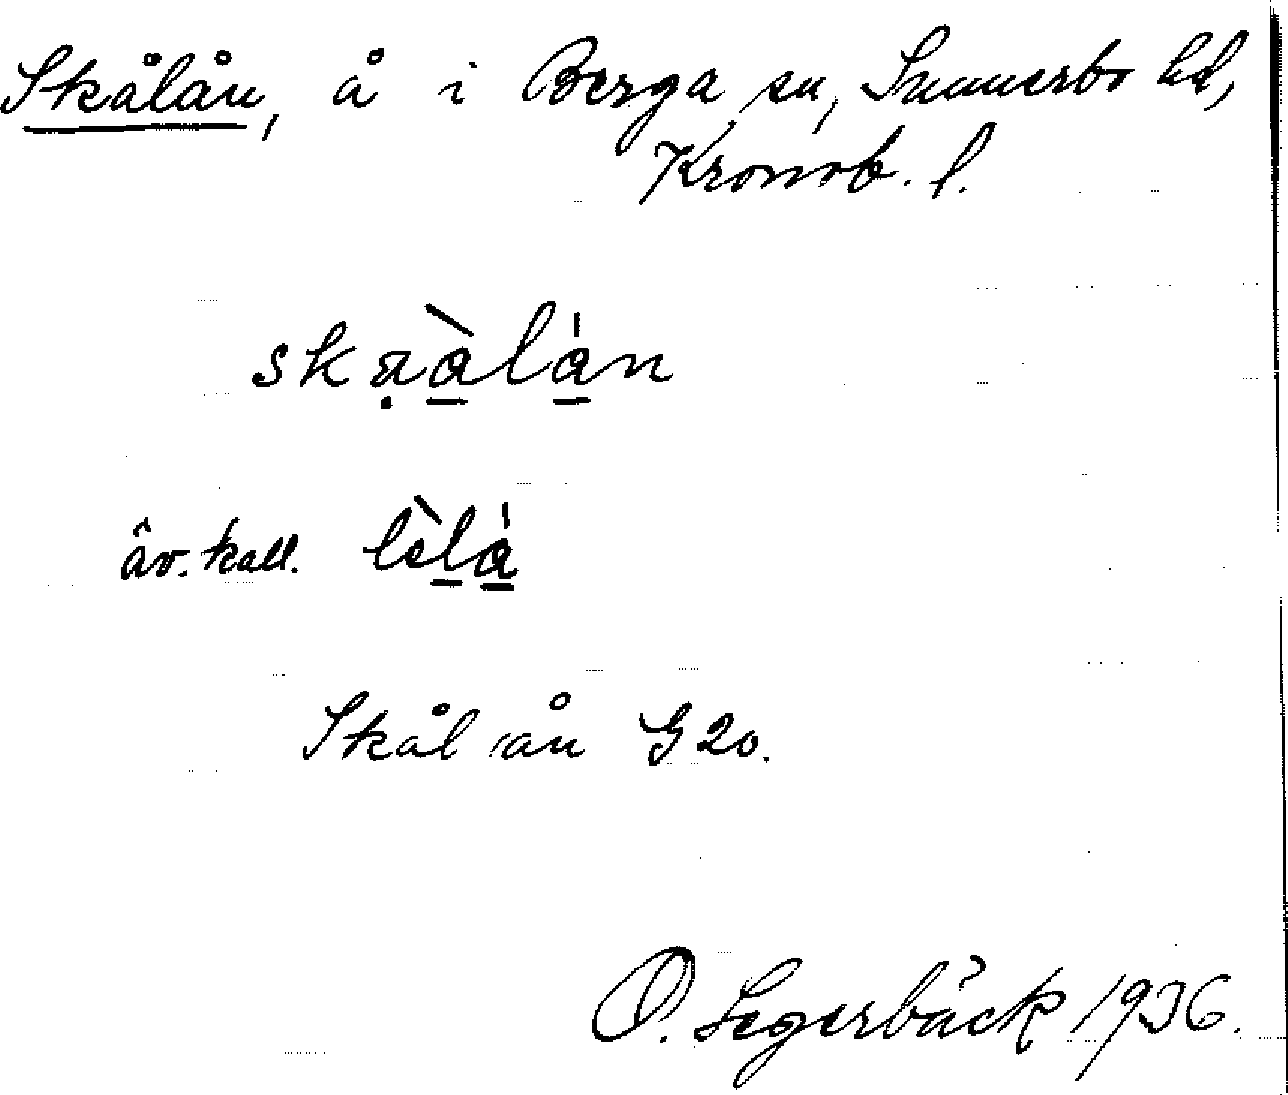 Skålån, å i Berga sn, Sunnerbo hd,
Kronob. l.
skaàlȧn
äv. kall. lèlȧ
Skål ån G 20.
O. Segerbäck 1936.